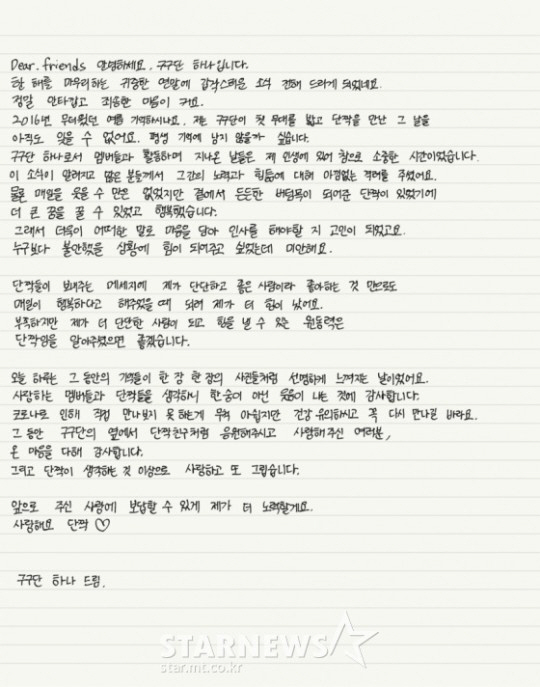 Dear. friends 안녕하세요. 구구단 하나입니다.
한 해를 마무리하는 귀중한 연말에 갑작스러운 소식 전해 드리게 되었네요.
정말 안타깝고 죄송한 마음이 커요.
2016년 무더웠던 여름 기억하시나요. 저는 구구단이 첫 무대를 밟고 단짝을 만난 그 날을
아직도 잊을 수 없어요. 평생 기억에 남지 않을까 싶습니다.
구구단 하나로서 멤버들과 활동하며 지나온 날들은 제 인생에 있어 참으로 소중한 시간이었습니다.
이 소식이 알려지고 많은 분들께서 그간의 노력과 힘듦에 대해 아낌없는 격려를 주셨어요.
물론 매일을 웃을 수 만은 없었지만 곁에서 든든한 버팀목이 되어준 단짝이 있었기에
더 큰 꿈을 꿀 수 있었고 행복했습니다.
그래서 더욱이 어떠한 말로 마음을 담아 인사를 해야할 지 고민이 되었고요.
누구보다 불안했을 상황에 힘이 되어주고 싶었는데 미안해요.
단짝들이 보내주는 메세지에 제가 단단하고 좋은 사람이라 좋아하는 것 만으로도
매일이 행복하다고 해주었을 때 되려 제가 더 힘이 났어요.
부족하지만 제가 더 단단한 사람이 되고 힘을 낼 수 있는 원동력은
단짝임을 알아주셨으면 좋겠습니다.
오늘 하루는 그 동안의 기억들이 한 장 한 장의 사진들처럼 선명하게 느껴지는 날이었어요.
사랑하는 멤버들과 단짝들을 생각하니 한 숨이 아닌 웃음이 나는 것에 감사합니다.
코로나로 인해 직접 만나보지 못하는게 무척 아쉽지만 건강 유의하시고 꼭 다시 만나길 바라요.
그 동안 구구단의 옆에서 단짝친구처럼 응원해주시고 사랑해주신 여러분,
온 마음을 다해 감사합니다.
그리고 단짝이 생각하는 것 이상으로 사랑하고 또 그립습니다.
앞으로 주신 사랑에 보답할 수 있게 제가 더 노력할게요.
사랑해요 단짝 ♡
구구단 하나 드림.
STARNEWS
star.mt.co.kr